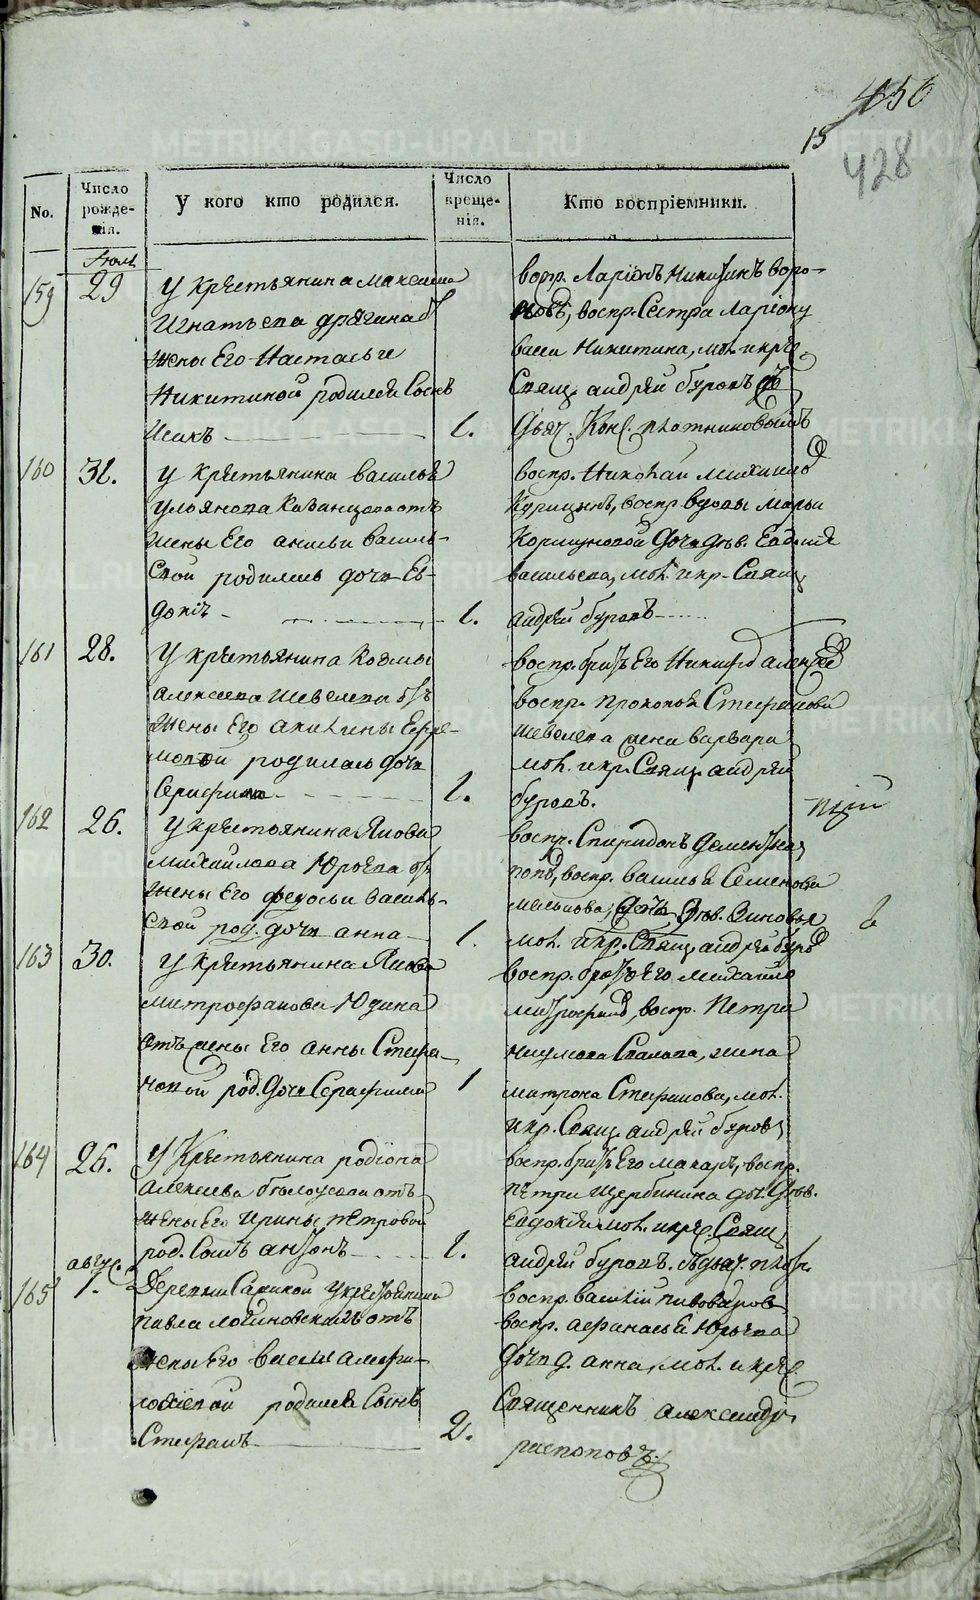 456
15
428
No.
Число рожденія.
У кого кто родился.
Число крещенія.
Кто воспріемники.
Июль
159
29
У крестьянина Максима
Игнатьева Дрягина отъ
жены Его Настасьи
Никитиной родился Сынъ
Исакъ
1.
воспр. Ларіонъ Никитинъ Воро-
новъ, воспр. Сестра Ларіону
Никитина, мол. и кре.
Свящ. андрей буровъ
Дьяч. Кон. плотниковымъ
160
31.
У крестьянина василья
ульянова Казанцова отъ
жены Его василь-
евой родилась дочь Ев-
докія
1.
воспр. Николай михайловъ
Курицынъ, воспр. вдовы марьи
Дочь Дѣв. Евдокія
васильева, мол. и кр. Свящ.
андрей буровъ
161
28.
У крестьянина Козмы
алексеева Шевелева отъ
жены Его акилины Ефре-
мовой родилась дочь
Серафима
1.
воспр. братъ Его алексеев
воспр. прокопья Стефанова
шевелева жена варвара
мол. и кр. Свящ. андрей
буровъ.
162
26.
У крестьянина Якова
михайлова Юрьева отъ
жены Его федосьи василь-
евой род. дочь анна
1.
воспр. Спиридонъ
поповъ, воспр. василья Семенова
дочь Дѣв. Зиновья
мол. и кр. Свящ. андрей буровъ
163
30.
У крестьянина Якова
митрофанова Юдина
отъ жены Его анны Стефа-
новой род. Дочь Серафима
1
воспр. братъ Его михайло
митрофановъ, воспр. Петра
жена
матрона Стефанова, мол.
и кр. Свящ. андрей буровъ
164
26.
У Крестьянина родіона
алексеева отъ
жены Его Ирины петровой
род. Сынъ антонъ
1.
воспр. братъ Его макаръ, воспр.
петра щербинина доч. Дѣв.
Евдокія мол. и кре. Свящ.
андрей буровъ. Дьяч. плот.
авгус.
165
1.
Деревни у крестьянина
павла отъ
жены Его
родился Сынъ
Стефанъ
2.
воспр. василій пивоваровъ
воспр. афанасья Юрьева
дочь д. анна, мол. и кре.
Священникъ александръ
распоповъ.